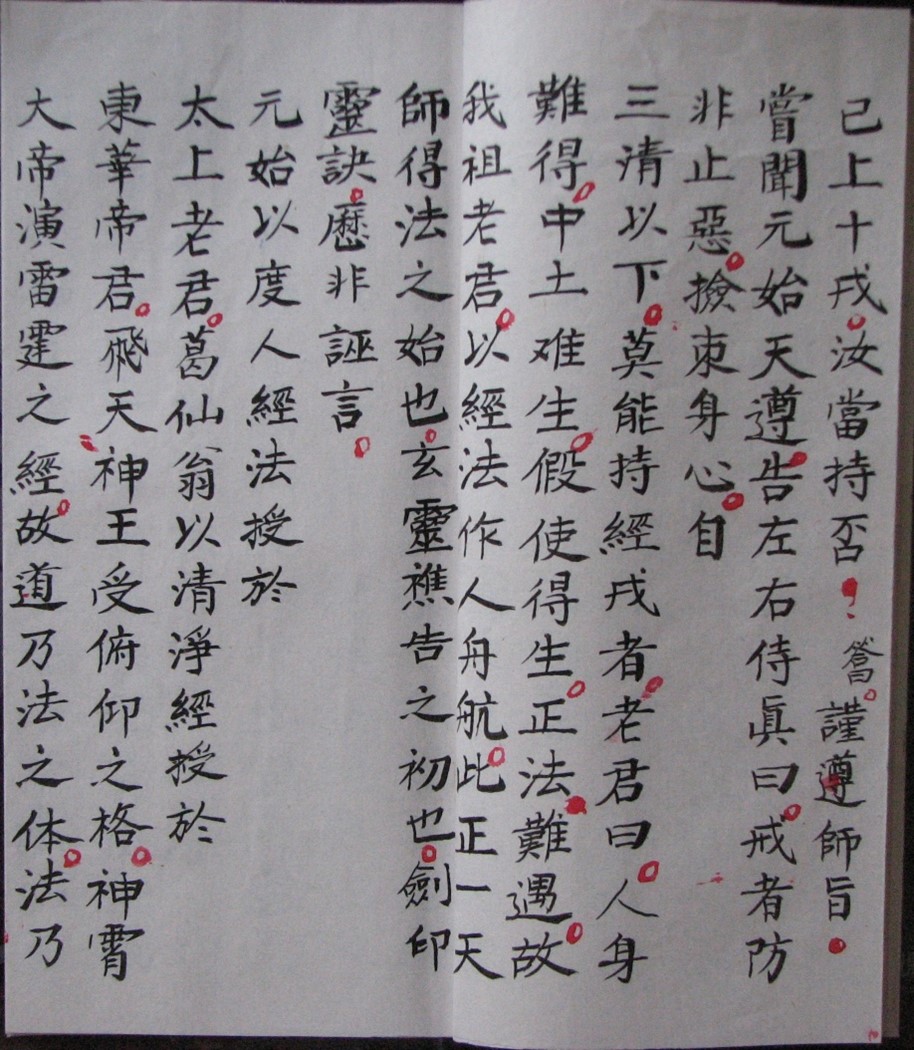 已上十戎汝當持否！答謹遵師旨
嘗聞元始天遵告左右侍眞曰戒者防
非止惡撿束身心自
三清以下莫能持經戎者老君曰人身
難得中土难生假使得生正法難遇故
我祖老君以經法作人舟航此正一天
師得法之始也玄靈樵告之初也劍印
靈訣歷非誣言
元始以度人經法授於
太上老君葛仙翁以清淨經授於
東華帝君飛天神王受俯仰之格神霄
大帝演雷霆之經故道乃法之体法乃